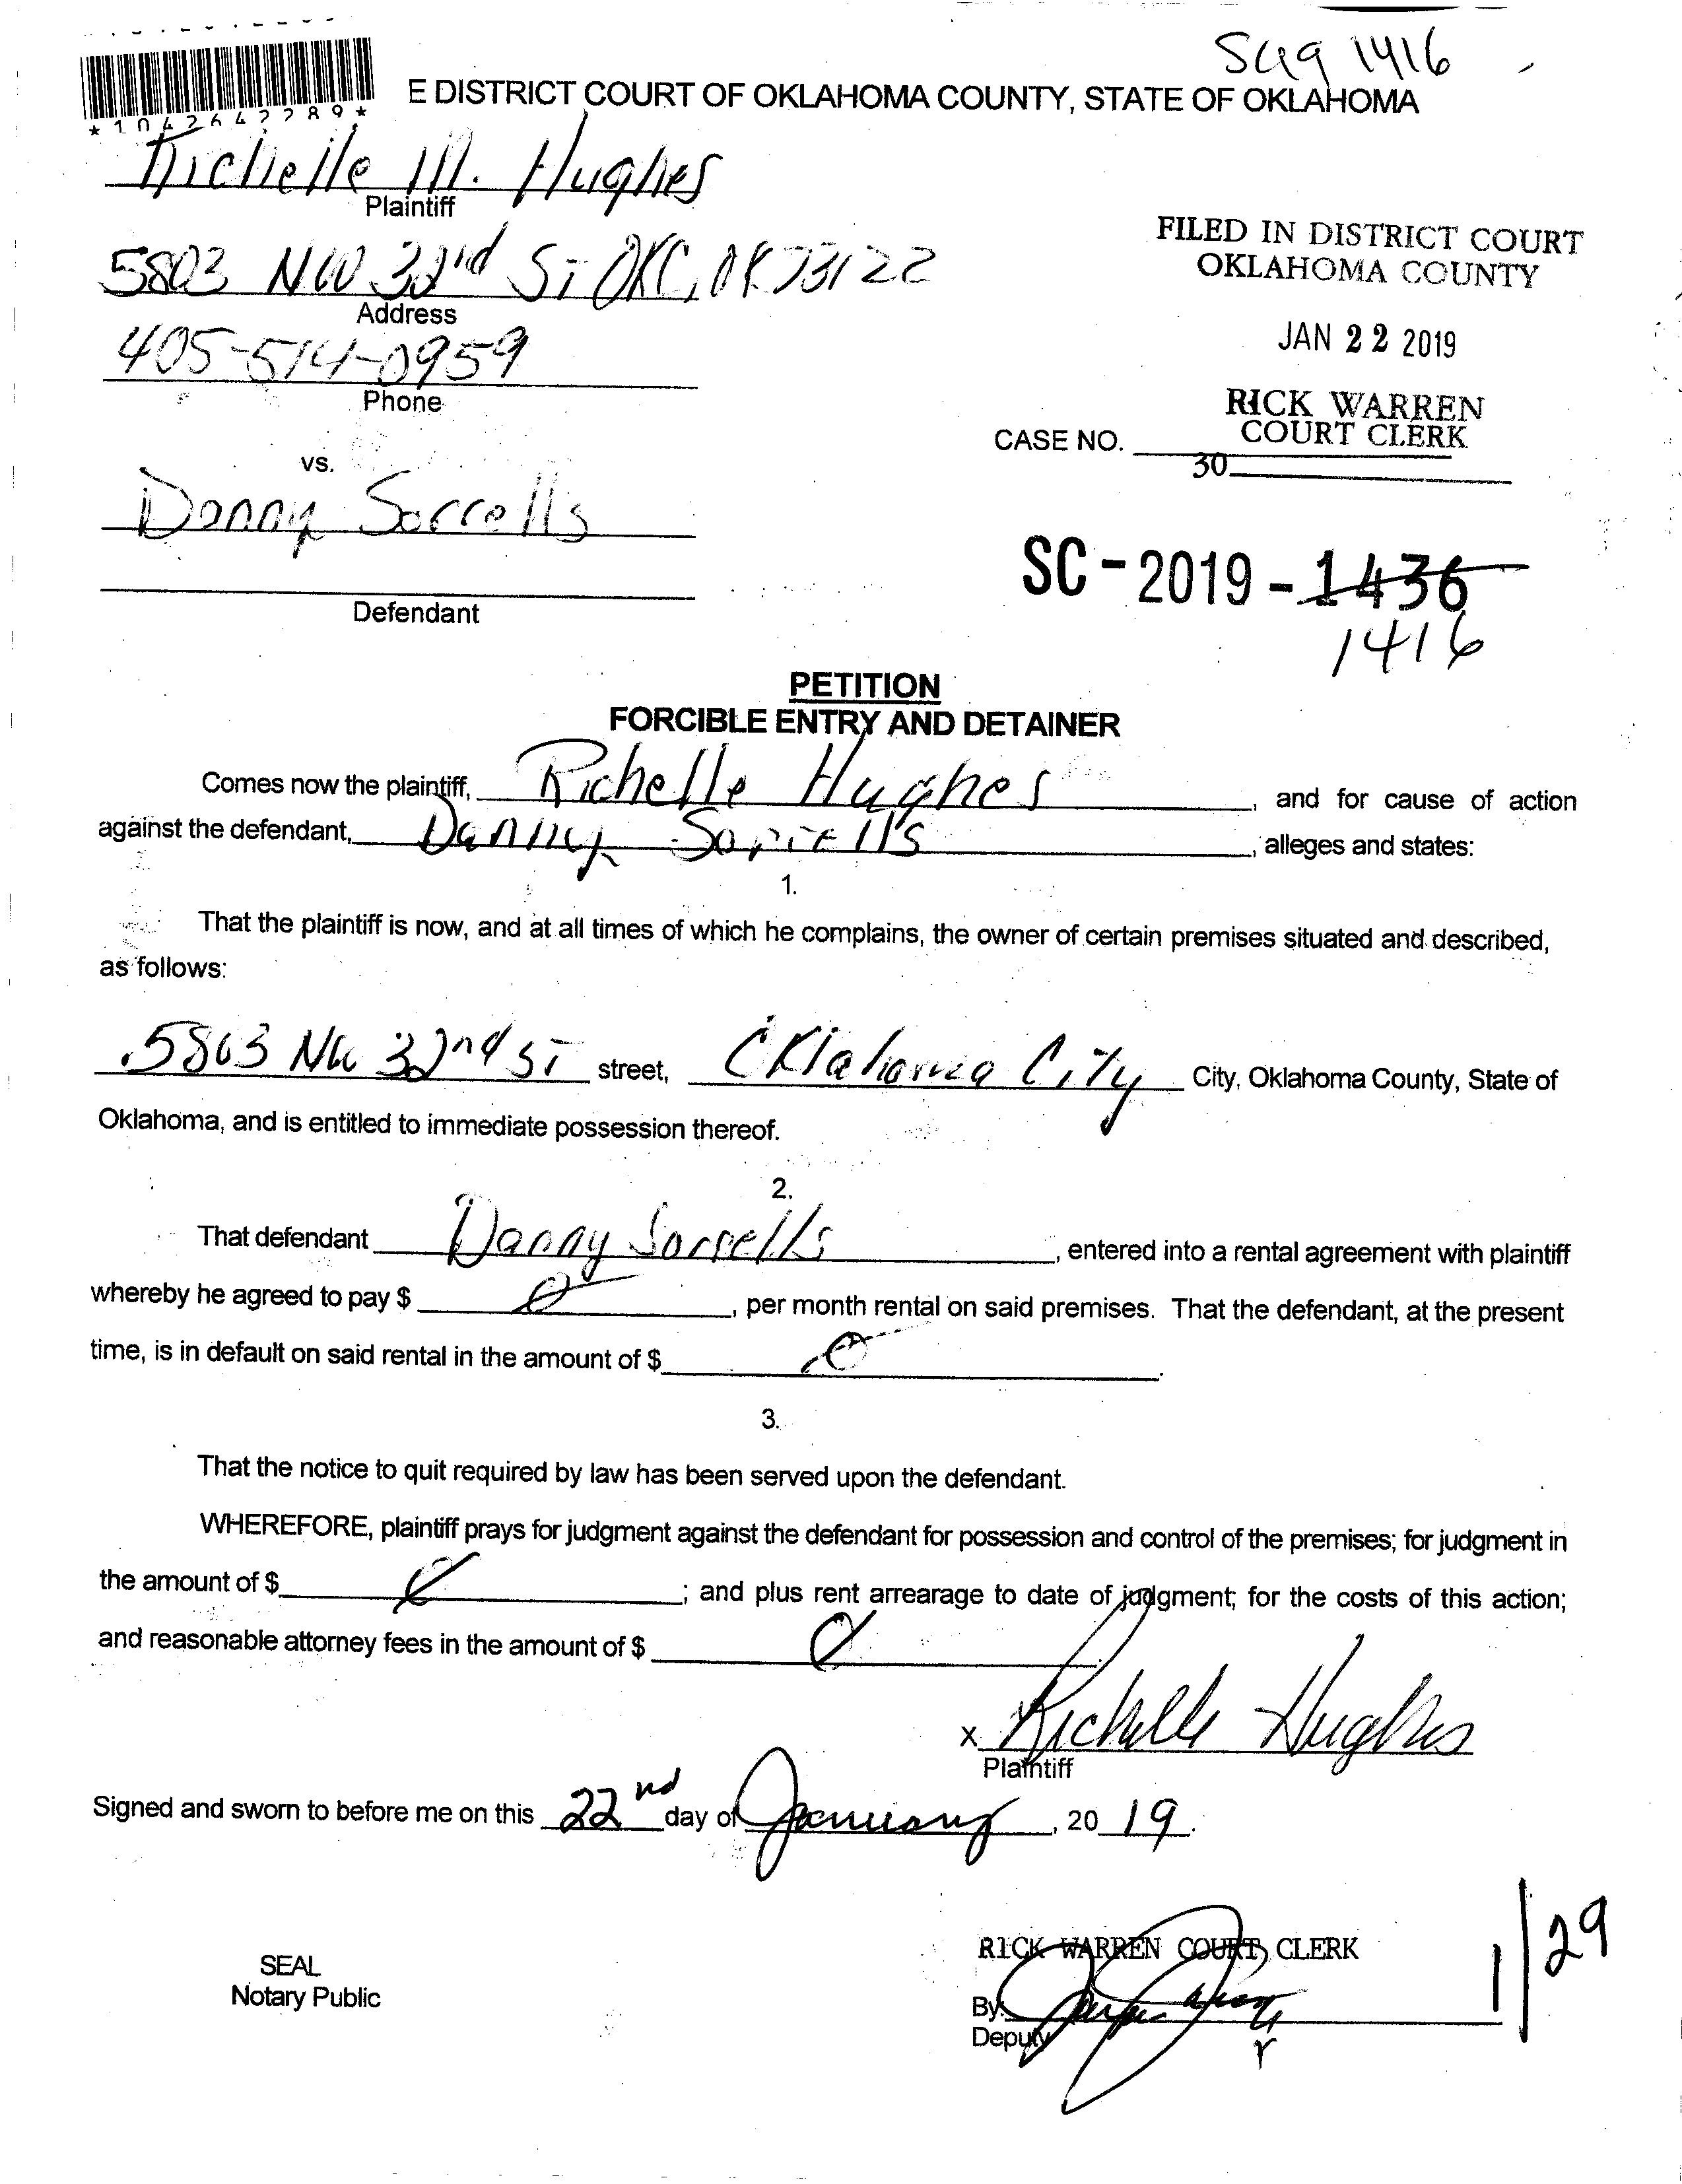 SC19 1416
E DISTRICT COURT OF OKLAHOMA COUNTY, STATE OF OKLAHOMA
*1042642289*
Richelle M. Hughes
Plaintiff
5803 NW 32nd St OKC, OK 73122
Address
405-514-0959
Phone
FILED IN DISTRICT COURT
OKLAHOMA COUNTY
JAN 22 2019
RICK WARREN
COURT CLERK
CASE NO.
30
vs.
Danny Sorrells
Defendant
SC-2019-1436
1416
PETITION
FORCIBLE ENTRY AND DETAINER
Comes now the plaintiff, Richelle Hughes, and for cause of action
against the defendant, Danny Sorrells, alleges and states:
1.
That the plaintiff is now, and at all times of which he complains, the owner of certain premises situated and described,
as follows:
5803 NW 32nd St street, Oklahoma City City, Oklahoma County, State of
Oklahoma, and is entitled to immediate possession thereof.
2.
That defendant Danny Sorrells, entered into a rental agreement with plaintiff
whereby he agreed to pay $ 0, per month rental on said premises. That the defendant, at the present
time, is in default on said rental in the amount of $ 0.
3.
That the notice to quit required by law has been served upon the defendant.
WHEREFORE, plaintiff prays for judgment against the defendant for possession and control of the premises; for judgment in
the amount of $ 0; and plus rent arrearage to date of judgment; for the costs of this action;
and reasonable attorney fees in the amount of $ 0.
X Richelle Hughes
Plaintiff
Signed and sworn to before me on this 22nd day of January, 2019.
SEAL
Notary Public
RICK WARREN COURT CLERK
By:
Deputy
1/29